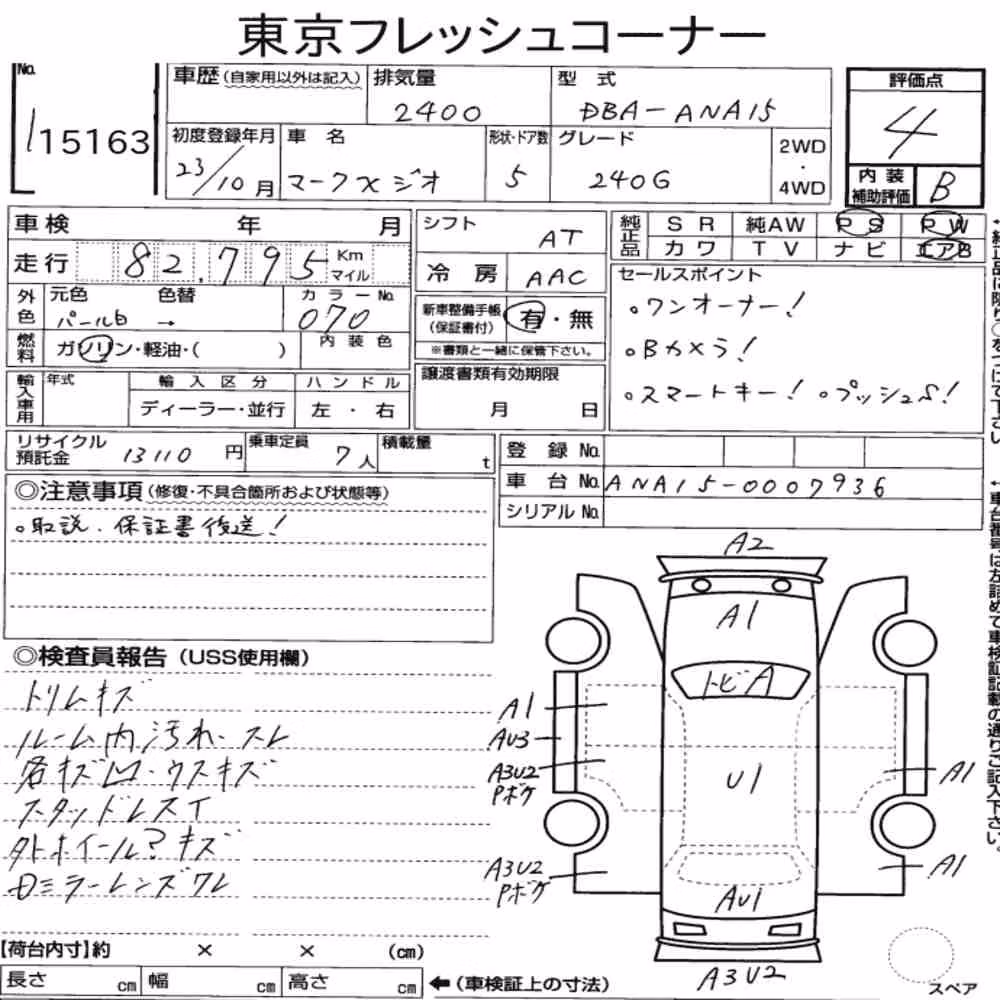 東京フレッシュコーナー
No.
115163
車歴(自家用以外は記入)
排気量
2400
型式
DBA-ANA15
初度登録年月
23/10月
車名
マークXジオ
形状・ドア数
5
グレード
240G
2WD
・
4WD
評価点
4
内装
補助評価
B
車検 年 月
走行 82,795 Km
マイル
外色
元色 色替
パール白 →
カラーNo.
070
燃料
ガソリン・軽油・( )
内装色
輸入車用
年式
輸入区分
ディーラー・並行
ハンドル
左・右
シフト
AT
冷房
AAC
新車整備手帳
(保証書付)
有・無
※書類と一緒に保管下さい。
譲渡書類有効期限
月 日
純正品
SR 純AW PS PW
カワ TV ナビ エアB
セールスポイント
。ワンオーナー!
。Bカメラ!
。スマートキー! 。プッシュS!
←純正品に限り○をつけて下さい
リサイクル
預託金
13110 円
乗車定員
7人
積載量
t
登録No.
車台No. ANA15-0007936
シリアルNo.
◎注意事項(修復・不具合箇所および状態等)
。取説.保証書後送!
←車台番号は左詰めで車検証記載の通りご記入下さい。
◎検査員報告(USS使用欄)
トリムキズ
ルーム内汚れ・スレ
各キズ凹・ウスキズ
スタッドレスT
外ホイール?キズ
Dミラーレンズワレ
A2
A1
トビA
A1
AU3
A3U2
Pボケ
U1
A1
A3U2
Pボケ
A1
AU1
A3U2
スペア
【荷台内寸】約 × × (cm)
長さ cm 幅 cm 高さ cm ←(車検証上の寸法)